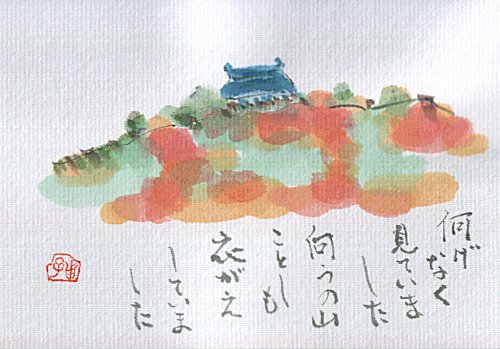 何げ
なく
見ていま
した
向うの山
ことしも
衣がえ
していま
した